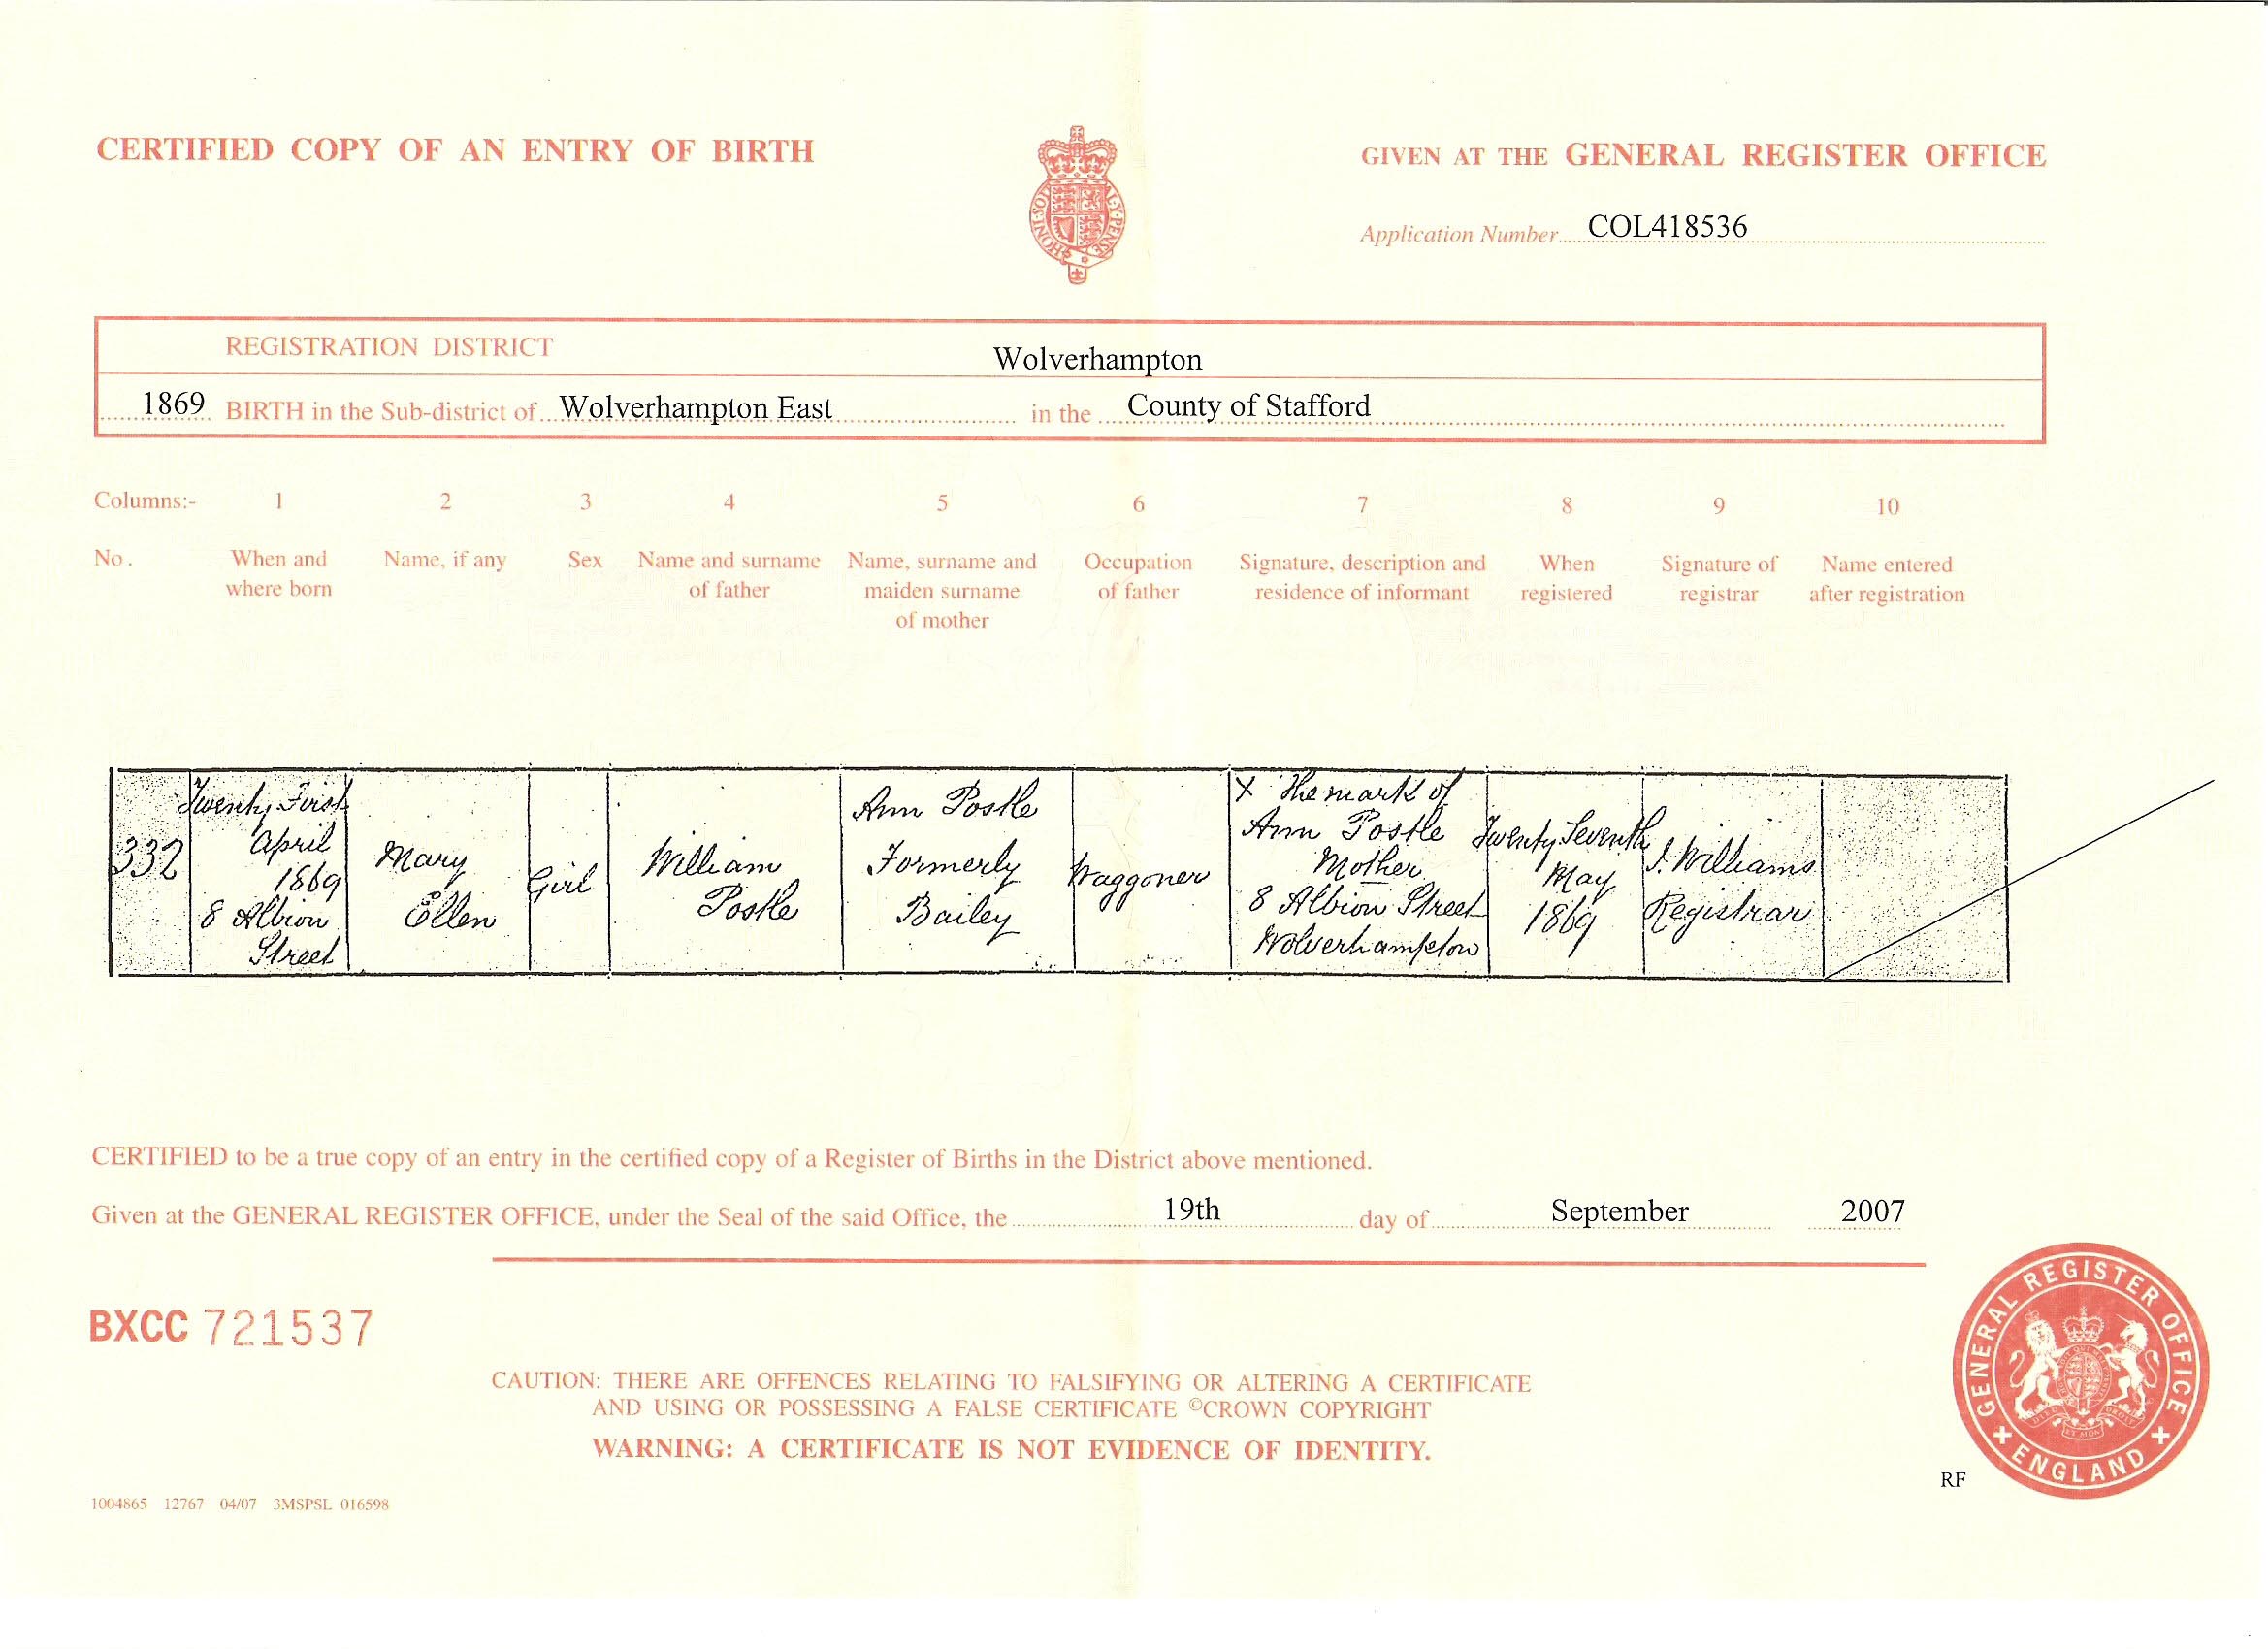 CERTIFIED COPY OF AN ENTRY OF BIRTH
GIVEN AT THE GENERAL REGISTER OFFICE
HONI·SOI AL·Y·PENSE
Application Number COL418536
REGISTRATION DISTRICT Wolverhampton
1869 BIRTH in the Sub-district of Wolverhampton East in the County of Stafford
Columns:- 1 2 3 4 5 6 7 8 9 10
No.
When and
where born
Name, if any
Sex
Name and surname
of father
Name, surname and
maiden surname
of mother
Occupation
of father
Signature, description and
residence of informant
When
registered
Signature of
registrar
Name entered
after registration
332
Twenty First
April
1869
8 Albion
Street
Mary
Ellen
Girl
William
Postle
Ann Postle
Formerly
Bailey
Waggoner
X The mark of
Ann Postle
Mother
8 Albion Street
Wolverhampton
Twenty Seventh
May
1869
J. Williams
Registrar
CERTIFIED to be a true copy of an entry in the certified copy of a Register of Births in the District above mentioned.
Given at the GENERAL REGISTER OFFICE, under the Seal of the said Office, the 19th day of September 2007
BXCC 721537
CAUTION: THERE ARE OFFENCES RELATING TO FALSIFYING OR ALTERING A CERTIFICATE
AND USING OR POSSESSING A FALSE CERTIFICATE ©CROWN COPYRIGHT
WARNING: A CERTIFICATE IS NOT EVIDENCE OF IDENTITY.
GENERAL REGISTER OFFICE
ENGLAND
RF
1004865 12767 04/07 3MSPSL 016598